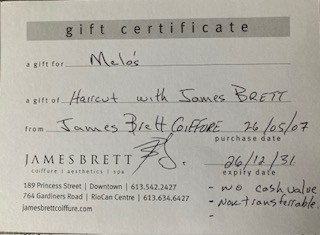 gift certificate
a gift for Melo's
a gift of Haircut with James BRETT
from James Brett COIFFURE 26/05/07
purchase date
JAMESBRETT
coiffure | aesthetics | spa
26/12/31
expiry date
189 Princess Street | Downtown | 613.542.2427
764 Gardiners Road | RioCan Centre | 613.634.6427
jamesbrettcoiffure.com
- no cash value
- Non transferrable.
-